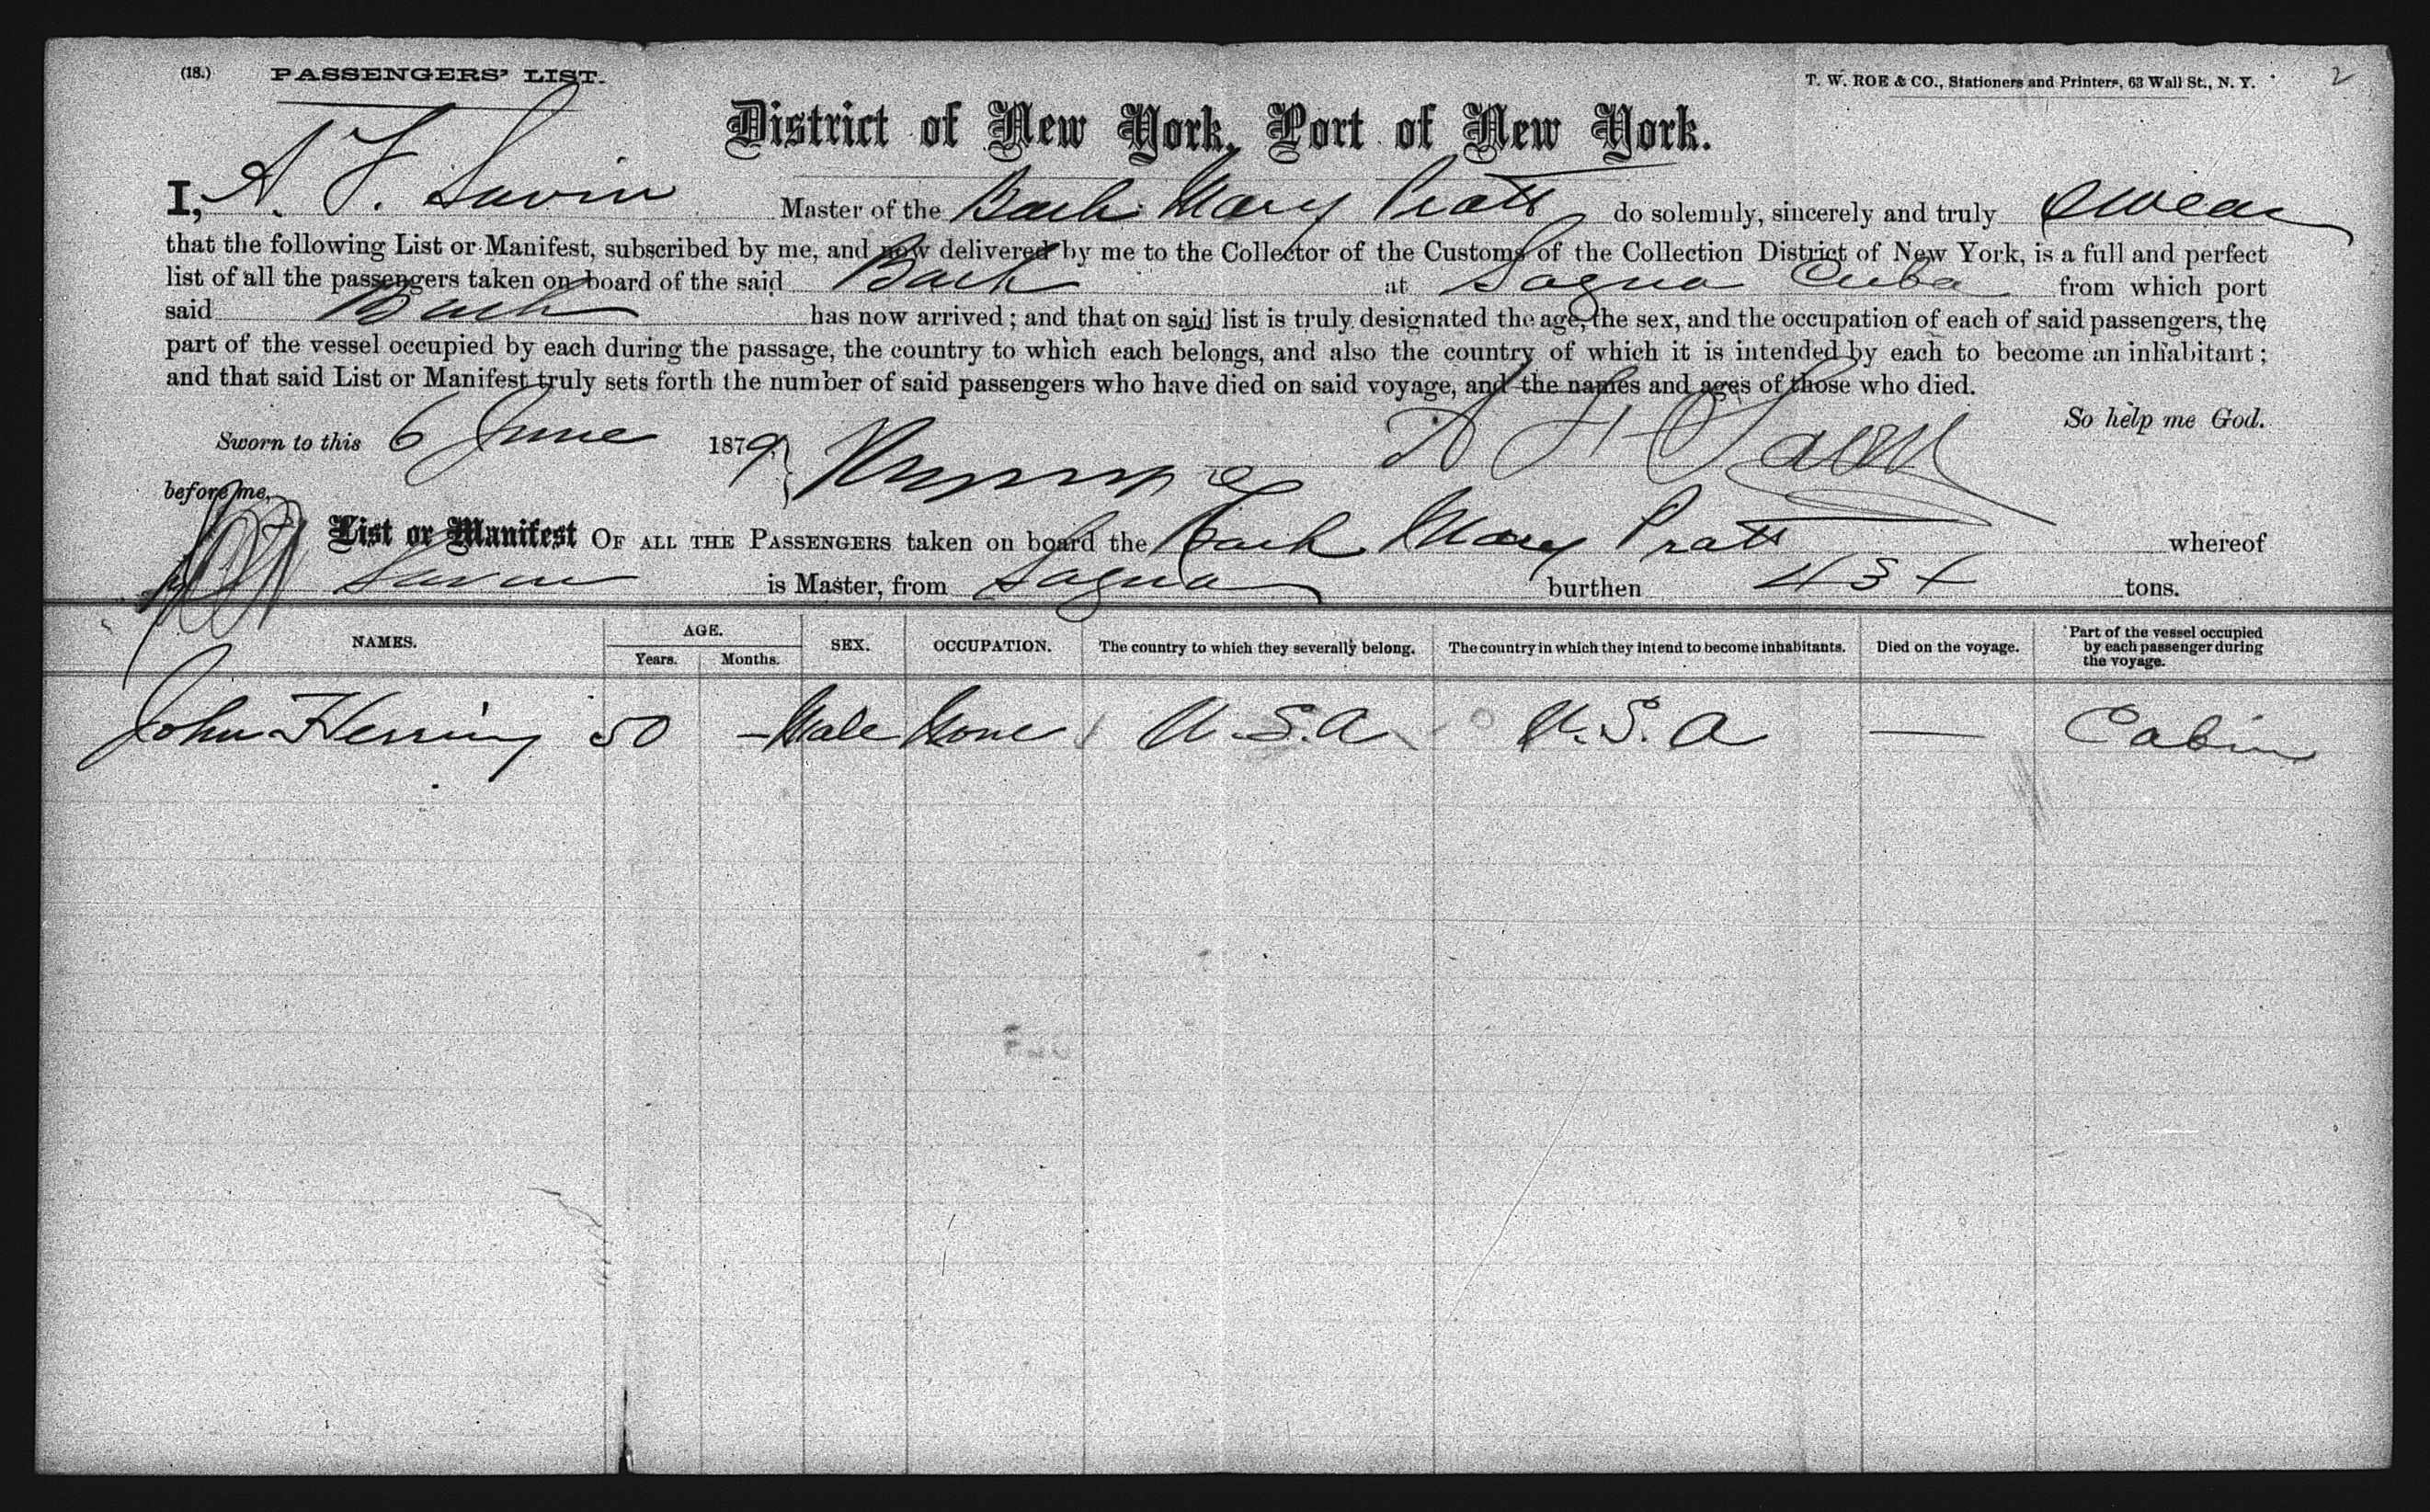 (18.) PASSENGERS' LIST. T. W. ROE & CO., Stationers and Printers, 63 Wall St., N. Y. 2
District of New York, Port of New York.
I, A. F. Savin Master of the Bark Mary Pratt do solemnly, sincerely and truly swear
that the following List or Manifest, subscribed by me, and now delivered by me to the Collector of the Customs of the Collection District of New York, is a full and perfect
list of all the passengers taken on board of the said Bark at Sagua Cuba from which port
said Bark has now arrived; and that on said list is truly designated the age, the sex, and the occupation of each of said passengers, the
part of the vessel occupied by each during the passage, the country to which each belongs, and also the country of which it is intended by each to become an inhabitant;
and that said List or Manifest truly sets forth the number of said passengers who have died on said voyage, and the names and ages of those who died.
So help me God.
Sworn to this 6 June 1879
before me,
List or Manifest OF ALL THE PASSENGERS taken on board the Bark Mary Pratt whereof
Savin is Master, from Sagua burthen tons.
NAMES. AGE. Years. Months. SEX. OCCUPATION. The country to which they severally belong. The country in which they intend to become inhabitants. Died on the voyage. Part of the vessel occupied by each passenger during the voyage.
John Herring 50 — Male None U.S.A U.S.A — Cabin